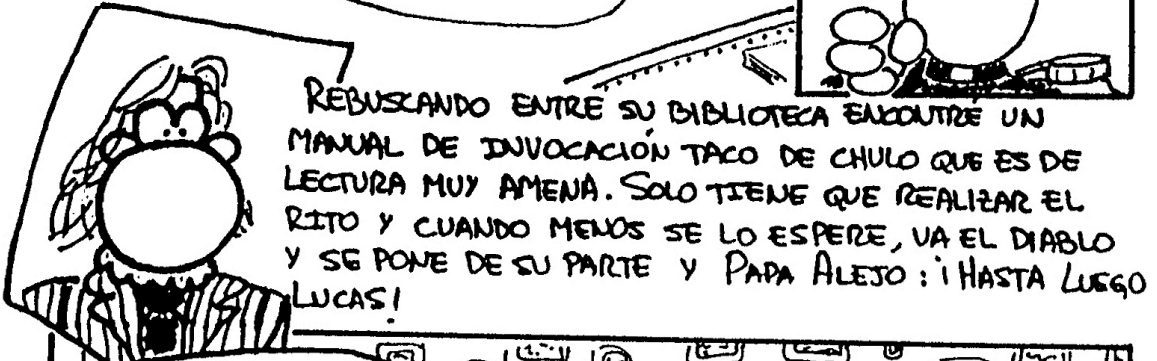 REBUSCANDO ENTRE SU BIBLIOTECA ENCONTRÉ UN
MANUAL DE INVOCACIÓN TACO DE CHULO QUE ES DE
LECTURA MUY AMENA. SOLO TIENE QUE REALIZAR EL
RITO Y CUANDO MENOS SE LO ESPERE, VA EL DIABLO
Y SE PONE DE SU PARTE Y PAPA ALEJO: ¡HASTA LUEGO
LUCAS!